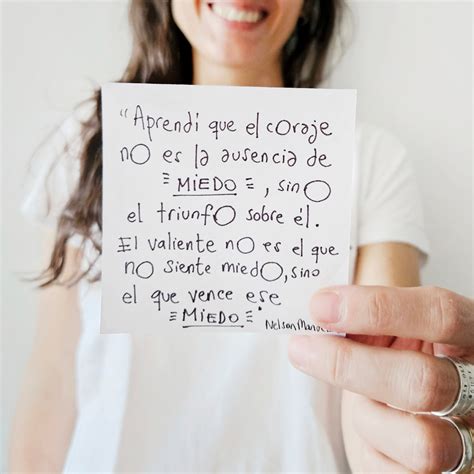 “Aprendí que el coraje
no es la ausencia de
MIEDO, sino
el triunfo sobre él.
El valiente no es el que
no siente miedo, sino
el que vence ese
MIEDO”.
Nelson